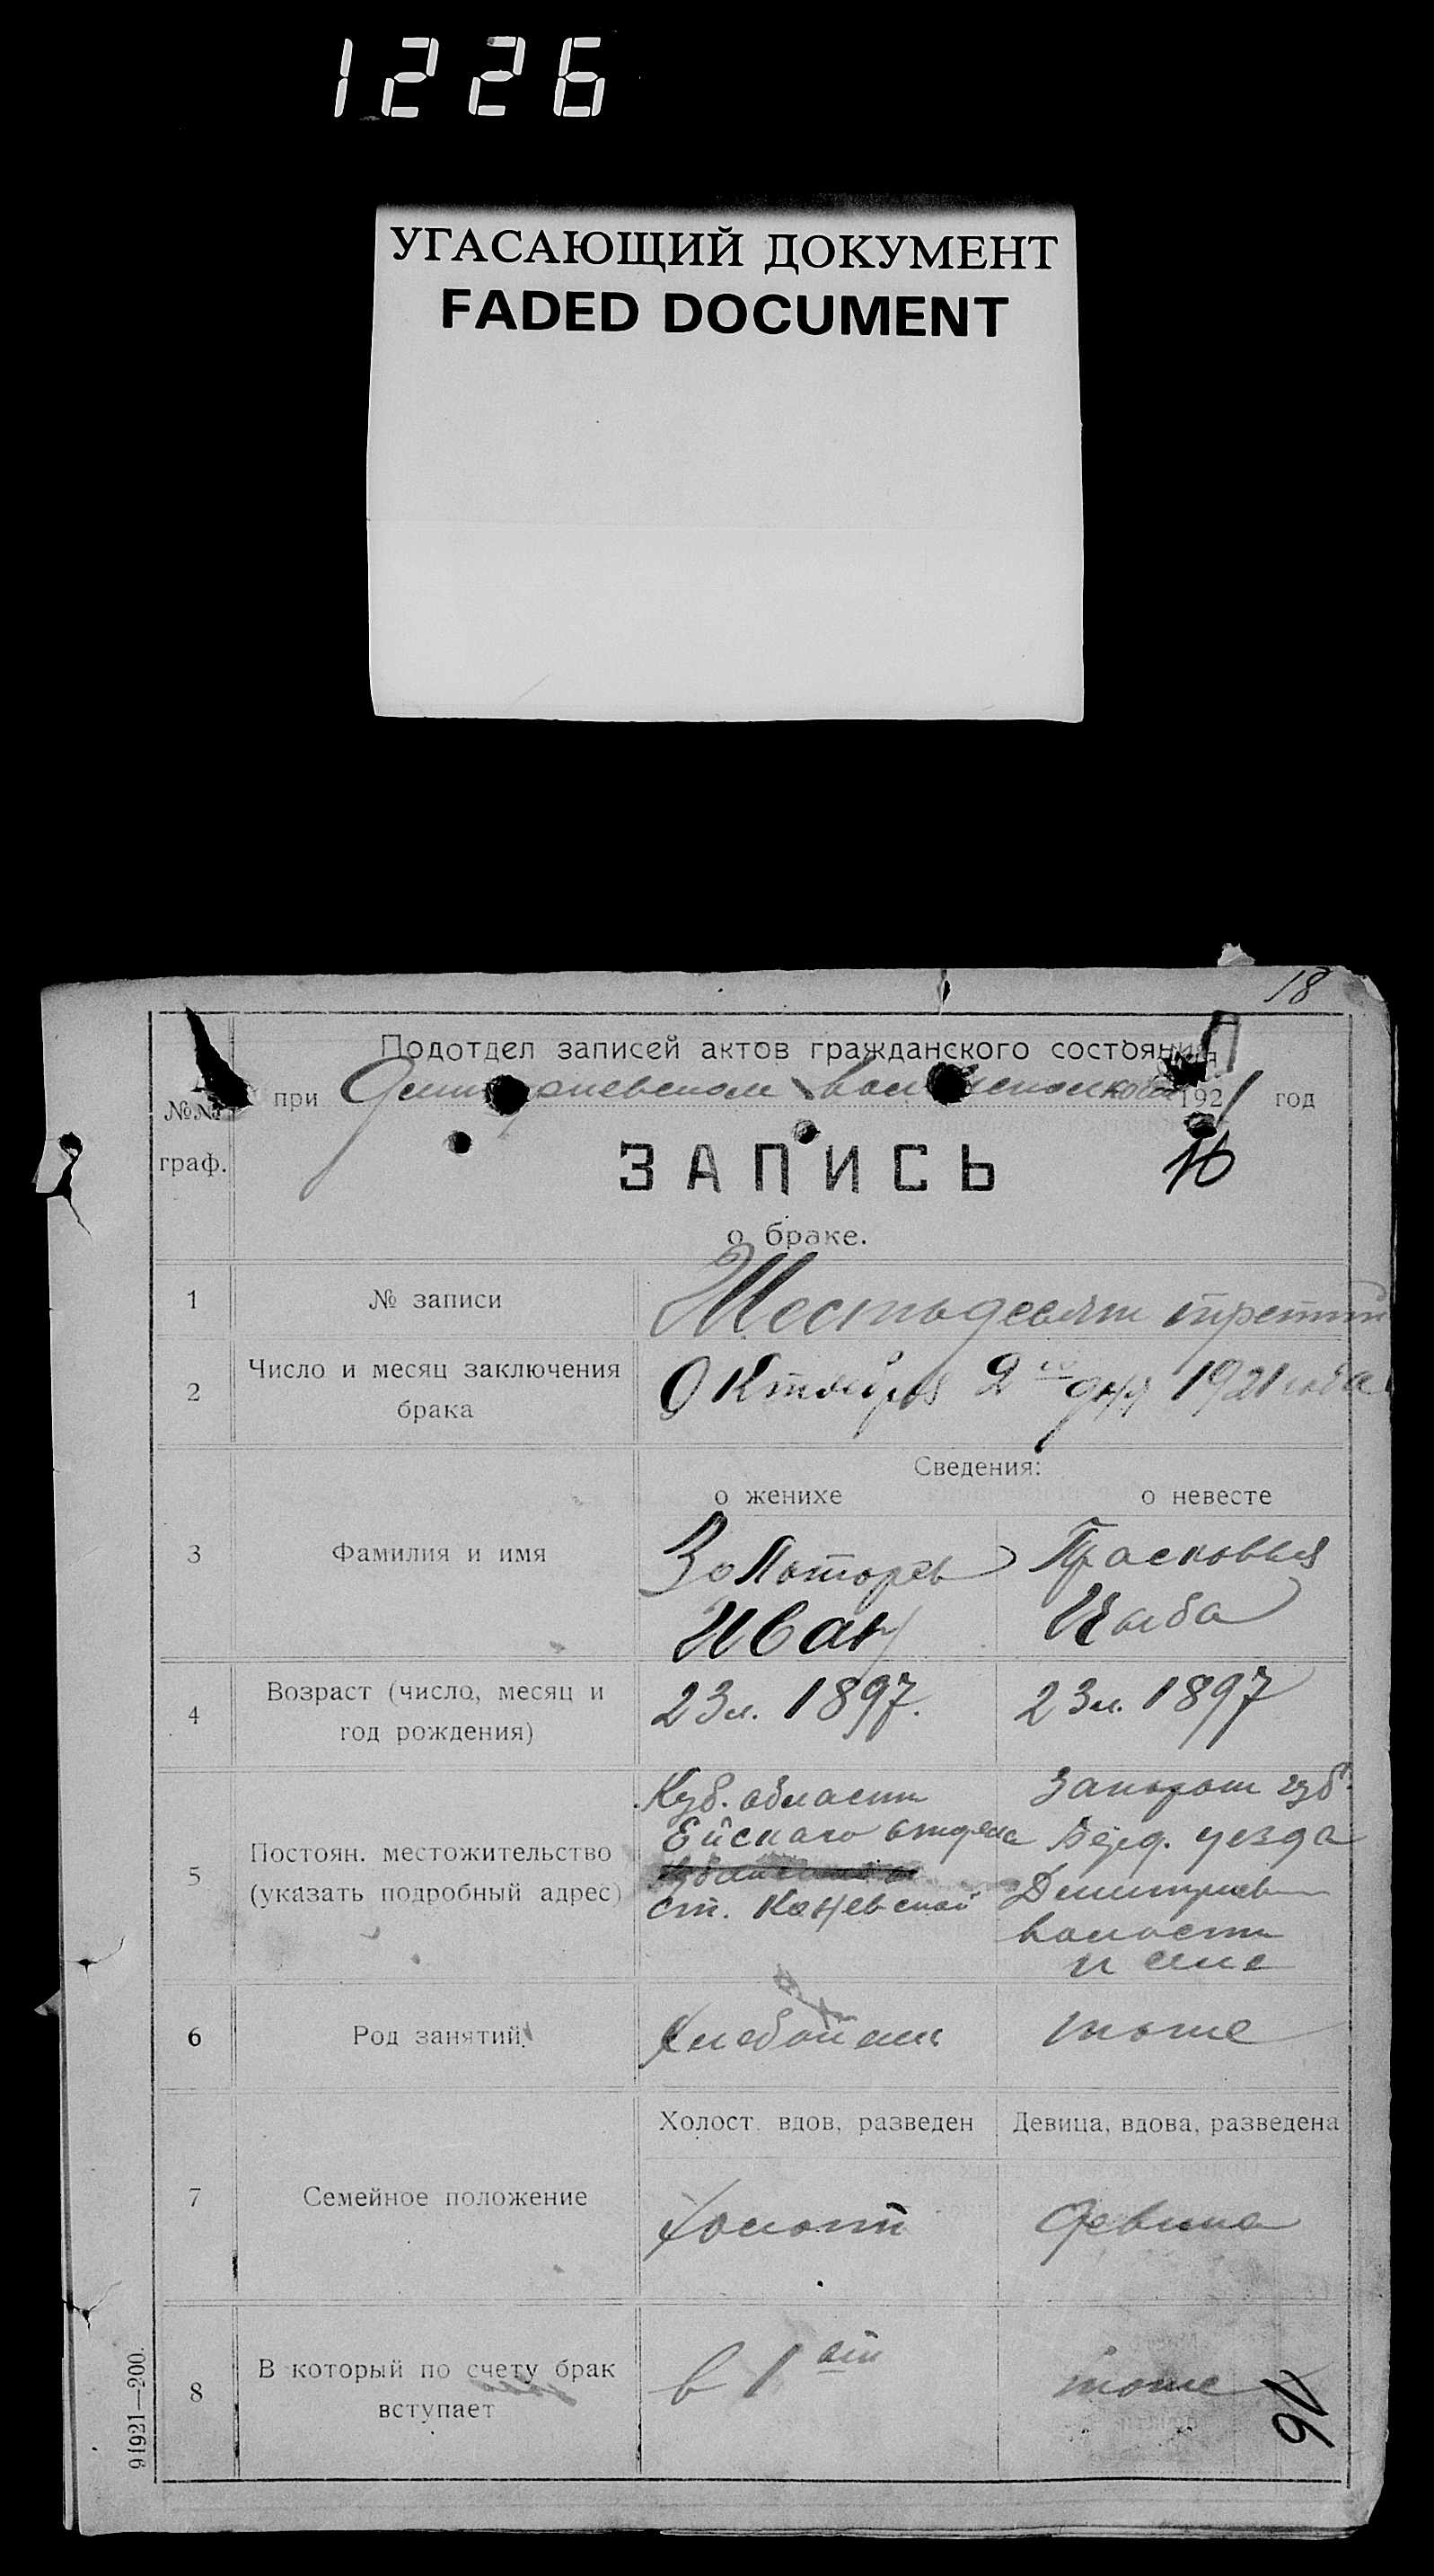 1226
УГАСАЮЩИЙ ДОКУМЕНТ
FADED DOCUMENT
18
Подотдел записей актов гражданского состояния
при 1921 год
№№ граф.
ЗАПИСЬ
16
о браке.
1 № записи Шестьдесят третий
2 Число и месяц заключения брака Октября 2го дня 1921 года
Сведения:
о женихе о невесте
3 Фамилия и имя Золоторев Прасковья
Иван Цыба
4 Возраст (число, месяц и год рождения) 23 л. 1897. 23 л. 1897
5 Постоян. местожительство (указать подробный адрес)
Куб. области Запорож губ.
Ейскаго отдела Берд. уезда
ст. Каневской Дмитриев
волости
и селе
6 Род занятий Хлебопаш тоже
Холост. вдов, разведен Девица, вдова, разведена
7 Семейное положение Холост девица
8 В который по счету брак вступает в 1ый тоже
91921—200.